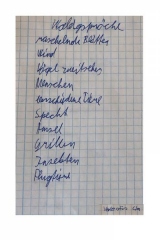 Waldgespräche
raschelnde Blätter
Wind
Vögel zwitschern
Menschen
verschiedene Töne
Specht
Amsel
Grillen
Insekten
Flugzeug